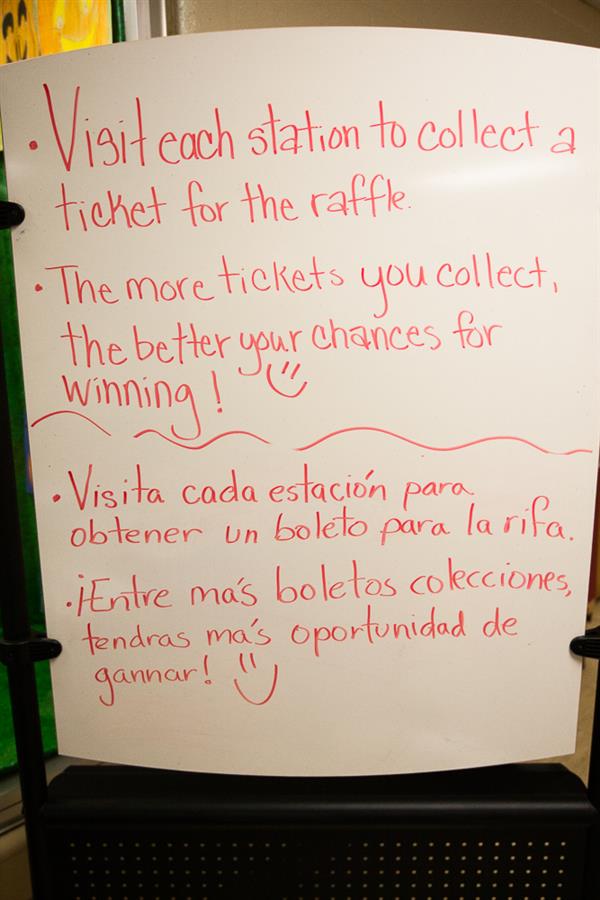 • Visit each station to collect a
ticket for the raffle.
• The more tickets you collect,
the better your chances for
winning!
• Visita cada estación para
obtener un boleto para la rifa.
• ¡Entre más boletos colecciones,
tendras más oportunidad de
gannar!